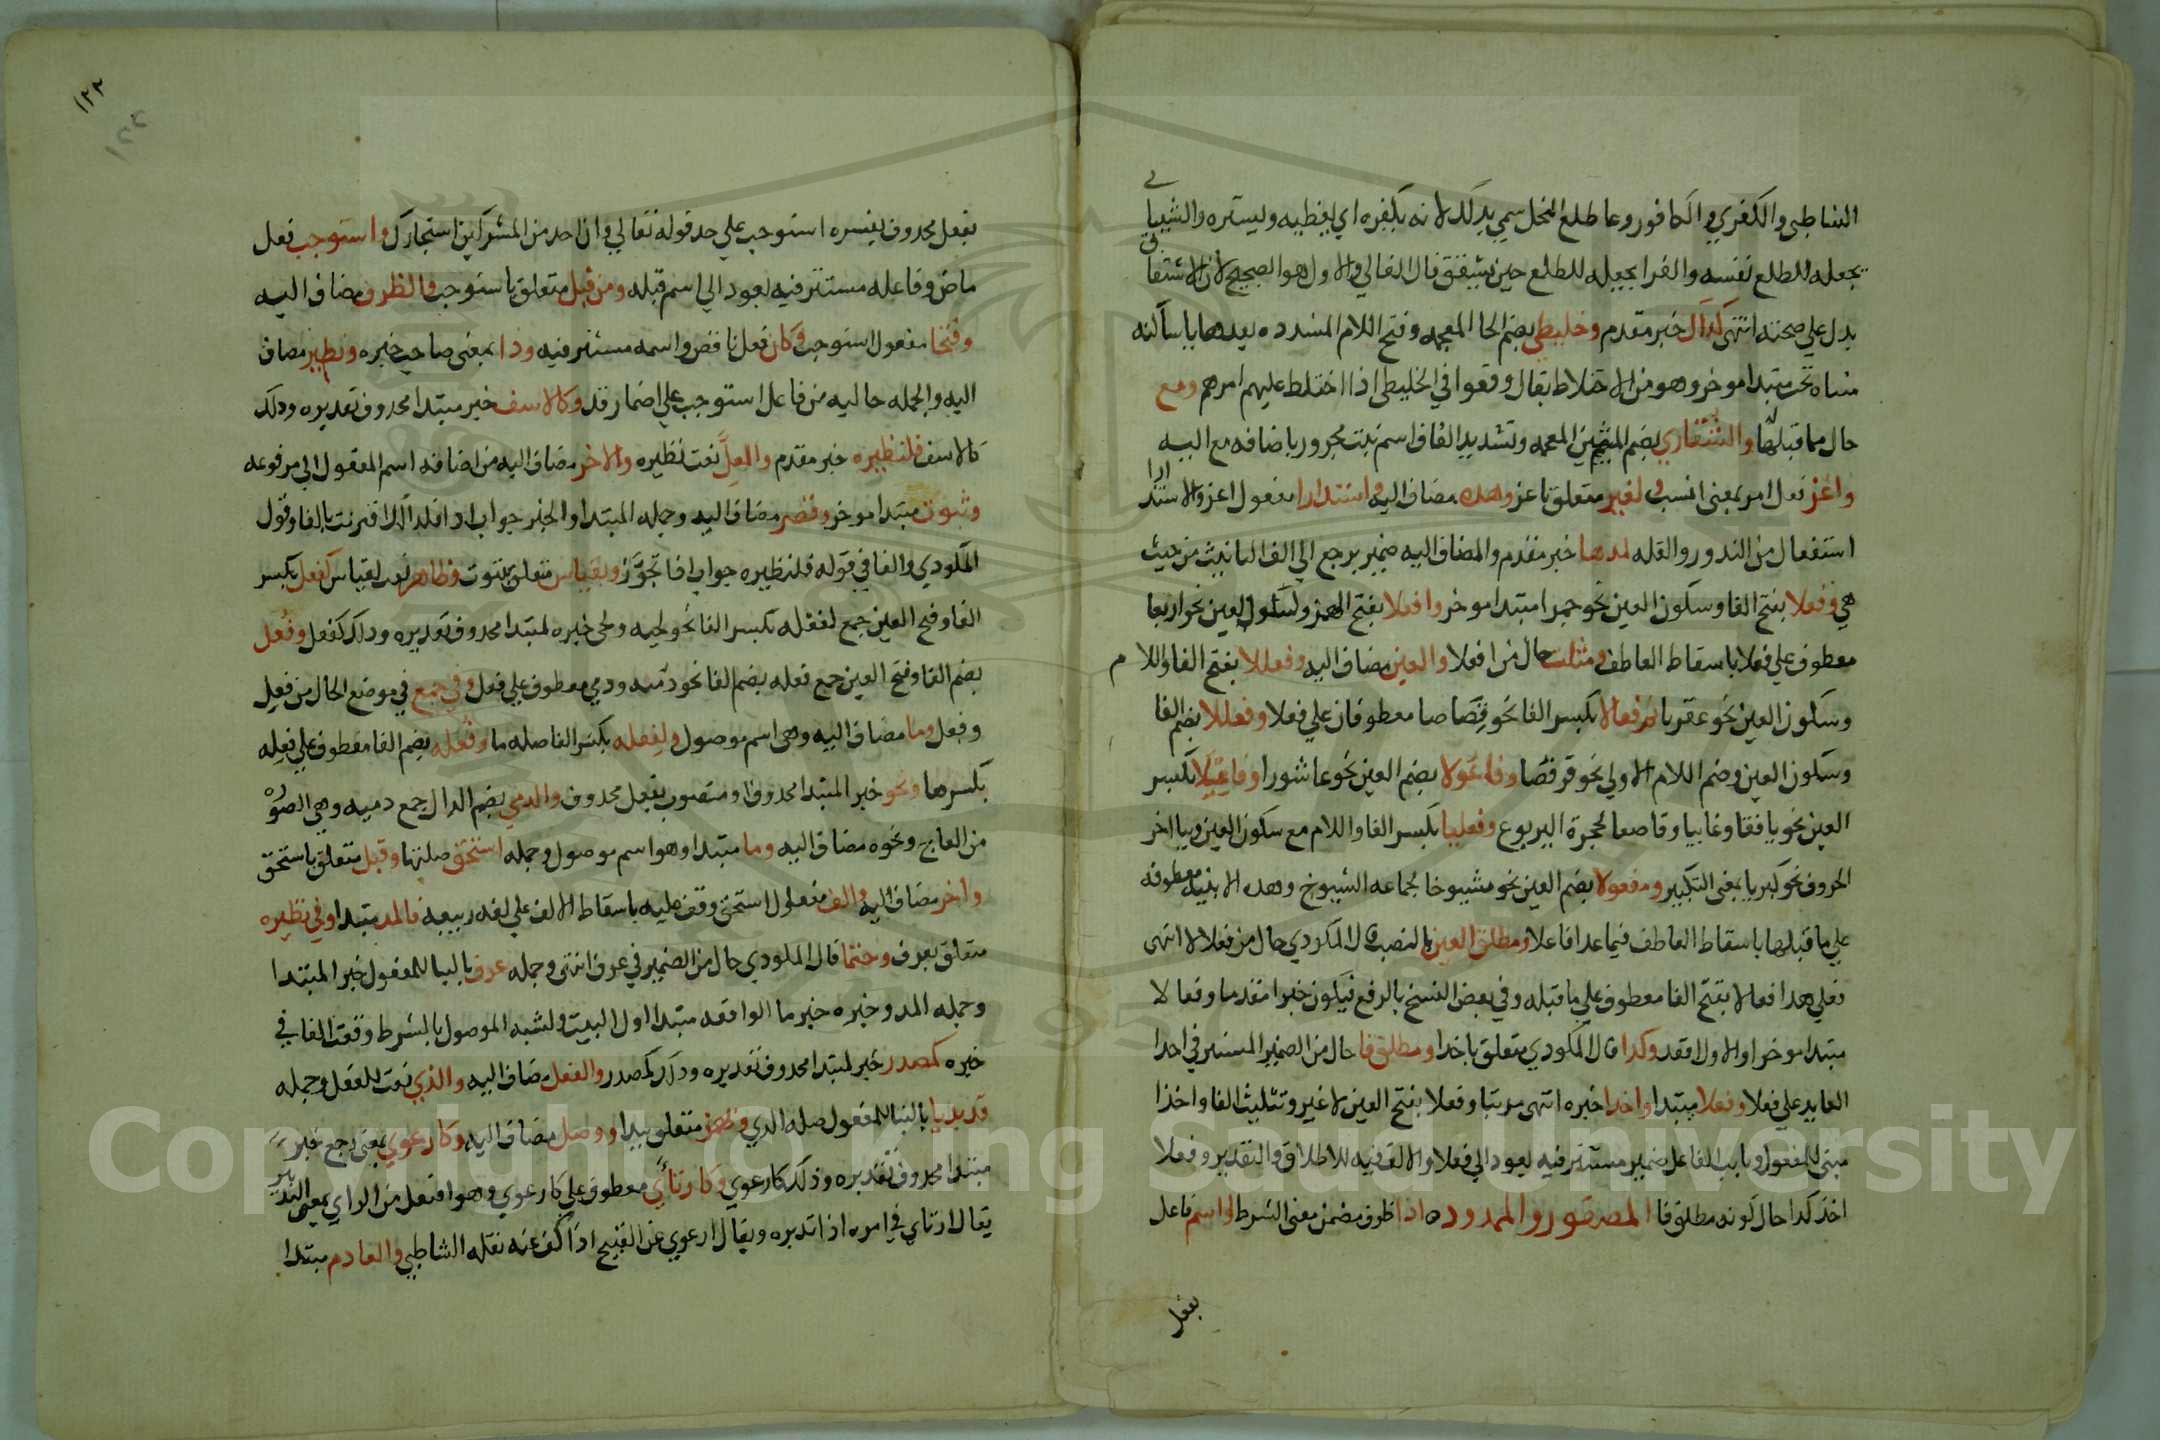 الشاطبي والكفري والكافور وعا طلع النخل سمي بذلك لانه يكفره اي يغطيه ويستره والشيباني
يجعله للطلع نفسه والفرا يجعله للطلع حين ينشق قال القالي والاول هو الصحيح لان الاشتقاق
يدل علي صحته انتهي كذاك خبر مقدم وخليطي بضم الخا المعجمه وفتح اللام المشدده بعدها يا ساكنه
مثناه تحت مبتدا موخر وهو من الاختلاط يقال وقعوا في الخليطي اذا اختلط عليهم امرهم ومع
حال مما قبلها والشقاري بضم الشين المعجمه وتشديد القاف اسم نبت مجرور باضافه مع اليه
واعز فعل امر بمعني انسب لغير متعلق باعز وهذه مضاف اليه استندارا مفعول اعز والاستندار
استفعال من الندور والقله لمدها خبر مقدم والمضاف اليه ضمير يرجع الي الف التانيث من حيث
هي وفعلا بفتح الفا وسكون العين نحو حمرا مبتدا موخر وافعلا بفتح الهمز وسكون العين نحو اربعا
معطوف علي فعلا باسقاط العاطف ومثلث حال من افعلا والعين مضاف اليه وفعللا بفتح الفا واللام
وسكون العين نحو عقربا ثم فعالا بكسر الفا نحو قصاصا معطوفان علي فعلا وفعللا بضم الفا
وسكون العين وضم اللام الاولي نحو قرفصا وفاعولا بضم العين نحو عاشورا وفاعلا بكسر
العين نحو يافقا وغابيا وقاصعا لحجرة اليربوع وفعليا بكسر الفا واللام مع سكون العين وبيا اخر
الحروف نحو كبريا بمعني التكبير ومفعولا بضم العين نحو مشيوخا لجماعه الشيوخ وهذه الابنيه معطوفه
علي ما قبلها باسقاط العاطف فيما عدا فاعلا ومطلق العين بالنصب قال المكودي حال من فعالا انتهي
فعلي هذا فعالا بفتح الفا معطوف علي ما قبله وفي بعض النسخ بالرفع فيكون خبرا مقدما وفعالا
مبتدا موخرا والاولا فقد وكذا قال المكودي متعلق باخذا ومطلق فا حال من الضمير المستتر في اخذا
العايد علي فعلا وفعلا مبتدا واخذا خبره انتهي مرتبا وفعلا بفتح العين لا غير وتثليث الفا واخذا
مبني للمفعول ونايب الفاعل ضمير مستتر فيه يعود الي فعلا والالف فيه للاطلاق والتقدير وفعلا
اخذ كذا حال كونه مطلق فا المقصور والممدوده اذا ظرف مضمن معني الشرط واسم فاعل
بفعل
١٢٣
بفعل محذوف يفسره استوجب علي حد قوله تعالي وان احد من المشركين استجارك واستوجب فعل
ماض وفاعله مستتر فيه يعود الي اسم قبله ومن قبل متعلق باستوجب والظرف مضاف اليه
وفتحا مفعول استوجب وكان فعل ناقص واسمه مستتر فيه وذا بمعني صاحب خبره ونظير مضاف
اليه والجمله حاليه من فاعل استوجب علي اضمار قد وكالاسف خبر مبتدا محذوف تقديره وذلك
كالاسف فلنظيره خبر مقدم والمعل نعت نظيره والاخر مضاف اليه من اضافه اسم المفعول الي مرفوعه
وثبوت مبتدا موخر وقصر مضاف اليه وجمله المبتدا والخبر جواب اذا فلذلك اقترنت بالفا وقول
المكودي والفا في قوله فلنظيره جواب اذا تجوز وبقياس متعلق بثبوت وظاهر نعت لقياس كفعل بكسر
الفا وفتح العين جمع لفعله بكسر الفا نحو لحيه ولحي خبره لمبتدا محذوف تقديره وذلك كفعل وفعل
بضم الفا وفتح العين جمع فعله بضم الفا نحو دميه ودمي معطوف علي فعل وفي جمع في موضع الحال من فعل
وفعل وما مضاف اليه وهي اسم موصول ولفعله بكسر الفا صله ما وفعله بضم الفا معطوف علي فعله
بكسرها ونحو خبر المبتدا محذوف او منصوب بفعل محذوف والدمي بضم الدال جمع دميه وهي الصوره
من العاج ونحوه مضاف اليه وما مبتدا وهو اسم موصول وجمله استحق صلتها وقبل متعلق باستحق
واخر مضاف اليه والف مفعول استحق وقف عليه باسقاط الالف علي لغه ربيعه فالمد مبتدا وفي نظيره
متعلق بعرف وحتما قال المكودي حال من الضمير في عرف انتهي وجمله عرف بالبنا للمفعول خبر المبتدا
وجمله المد وخبره خبر ما الواقعه مبتدا اول البيت ولشبه الموصول بالشرط وقعت الفا في
خبره كمصدر خبر لمبتدا محذوف تقديره وذلك كمصدر والفعل مضاف اليه والذي نعت للفعل وجمله
قد بديا بالبنا للمفعول صله الذي وبهمز متعلق ببدا ووصل مضاف اليه وكارعوي بمعني رجع خبر
مبتدا محذوف تقديره وذلك كارعوي وكارتاي معطوف علي كارعوي وهو افتعل من الراي بمعني التدبير
يقال ارتاي في امره اذا تدبره ويقال ارعوي عن القبيح اذا كف عنه نقله الشاطبي والعادم مبتدا
Copyright © King Saud University